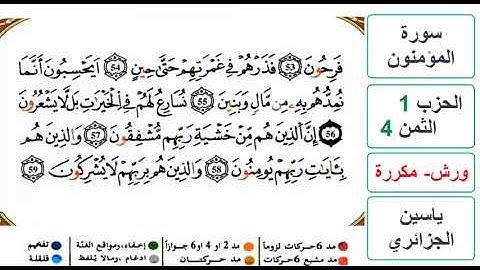 فَرِحُونَ 53 فَذَرْهُمْ فِے غَمْرَتِهِمْ حَتَّىٰ حِينٍ 54 اَيَحْسِبُونَ أَنَّمَا
نُمِدُّهُم بِهِۦ مِن مَّالٍ وَبَنِينَ 55 نُسَارِعُ لَهُمْ فِے اِلْخَيْرَٰتِ بَل لَّا يَشْعُرُونَ
56 إِنَّ اَلذِينَ هُم مِّنْ خَشْيَةِ رَبِّهِم مُّشْفِقُونَ 57 وَالذِينَ هُم
بِـَٔايَٰتِ رَبِّهِمْ يُومِنُونَ 58 وَالذِينَ هُم بِرَبِّهِمْ لَا يُشْرِكُونَ 59
سورة
المؤمنون
الحزب 1
الثمن 4
ورش- مكررة
ياسين
الجزائري
مد 6 حركات لزوماً مد 2 او 4 او 6 جوازاً إخفاء، ومواقع الغنة تفخيم
مد مشبع 6 حركات مد حركتان ادغام ، ومالا يُلفظ قلقلة